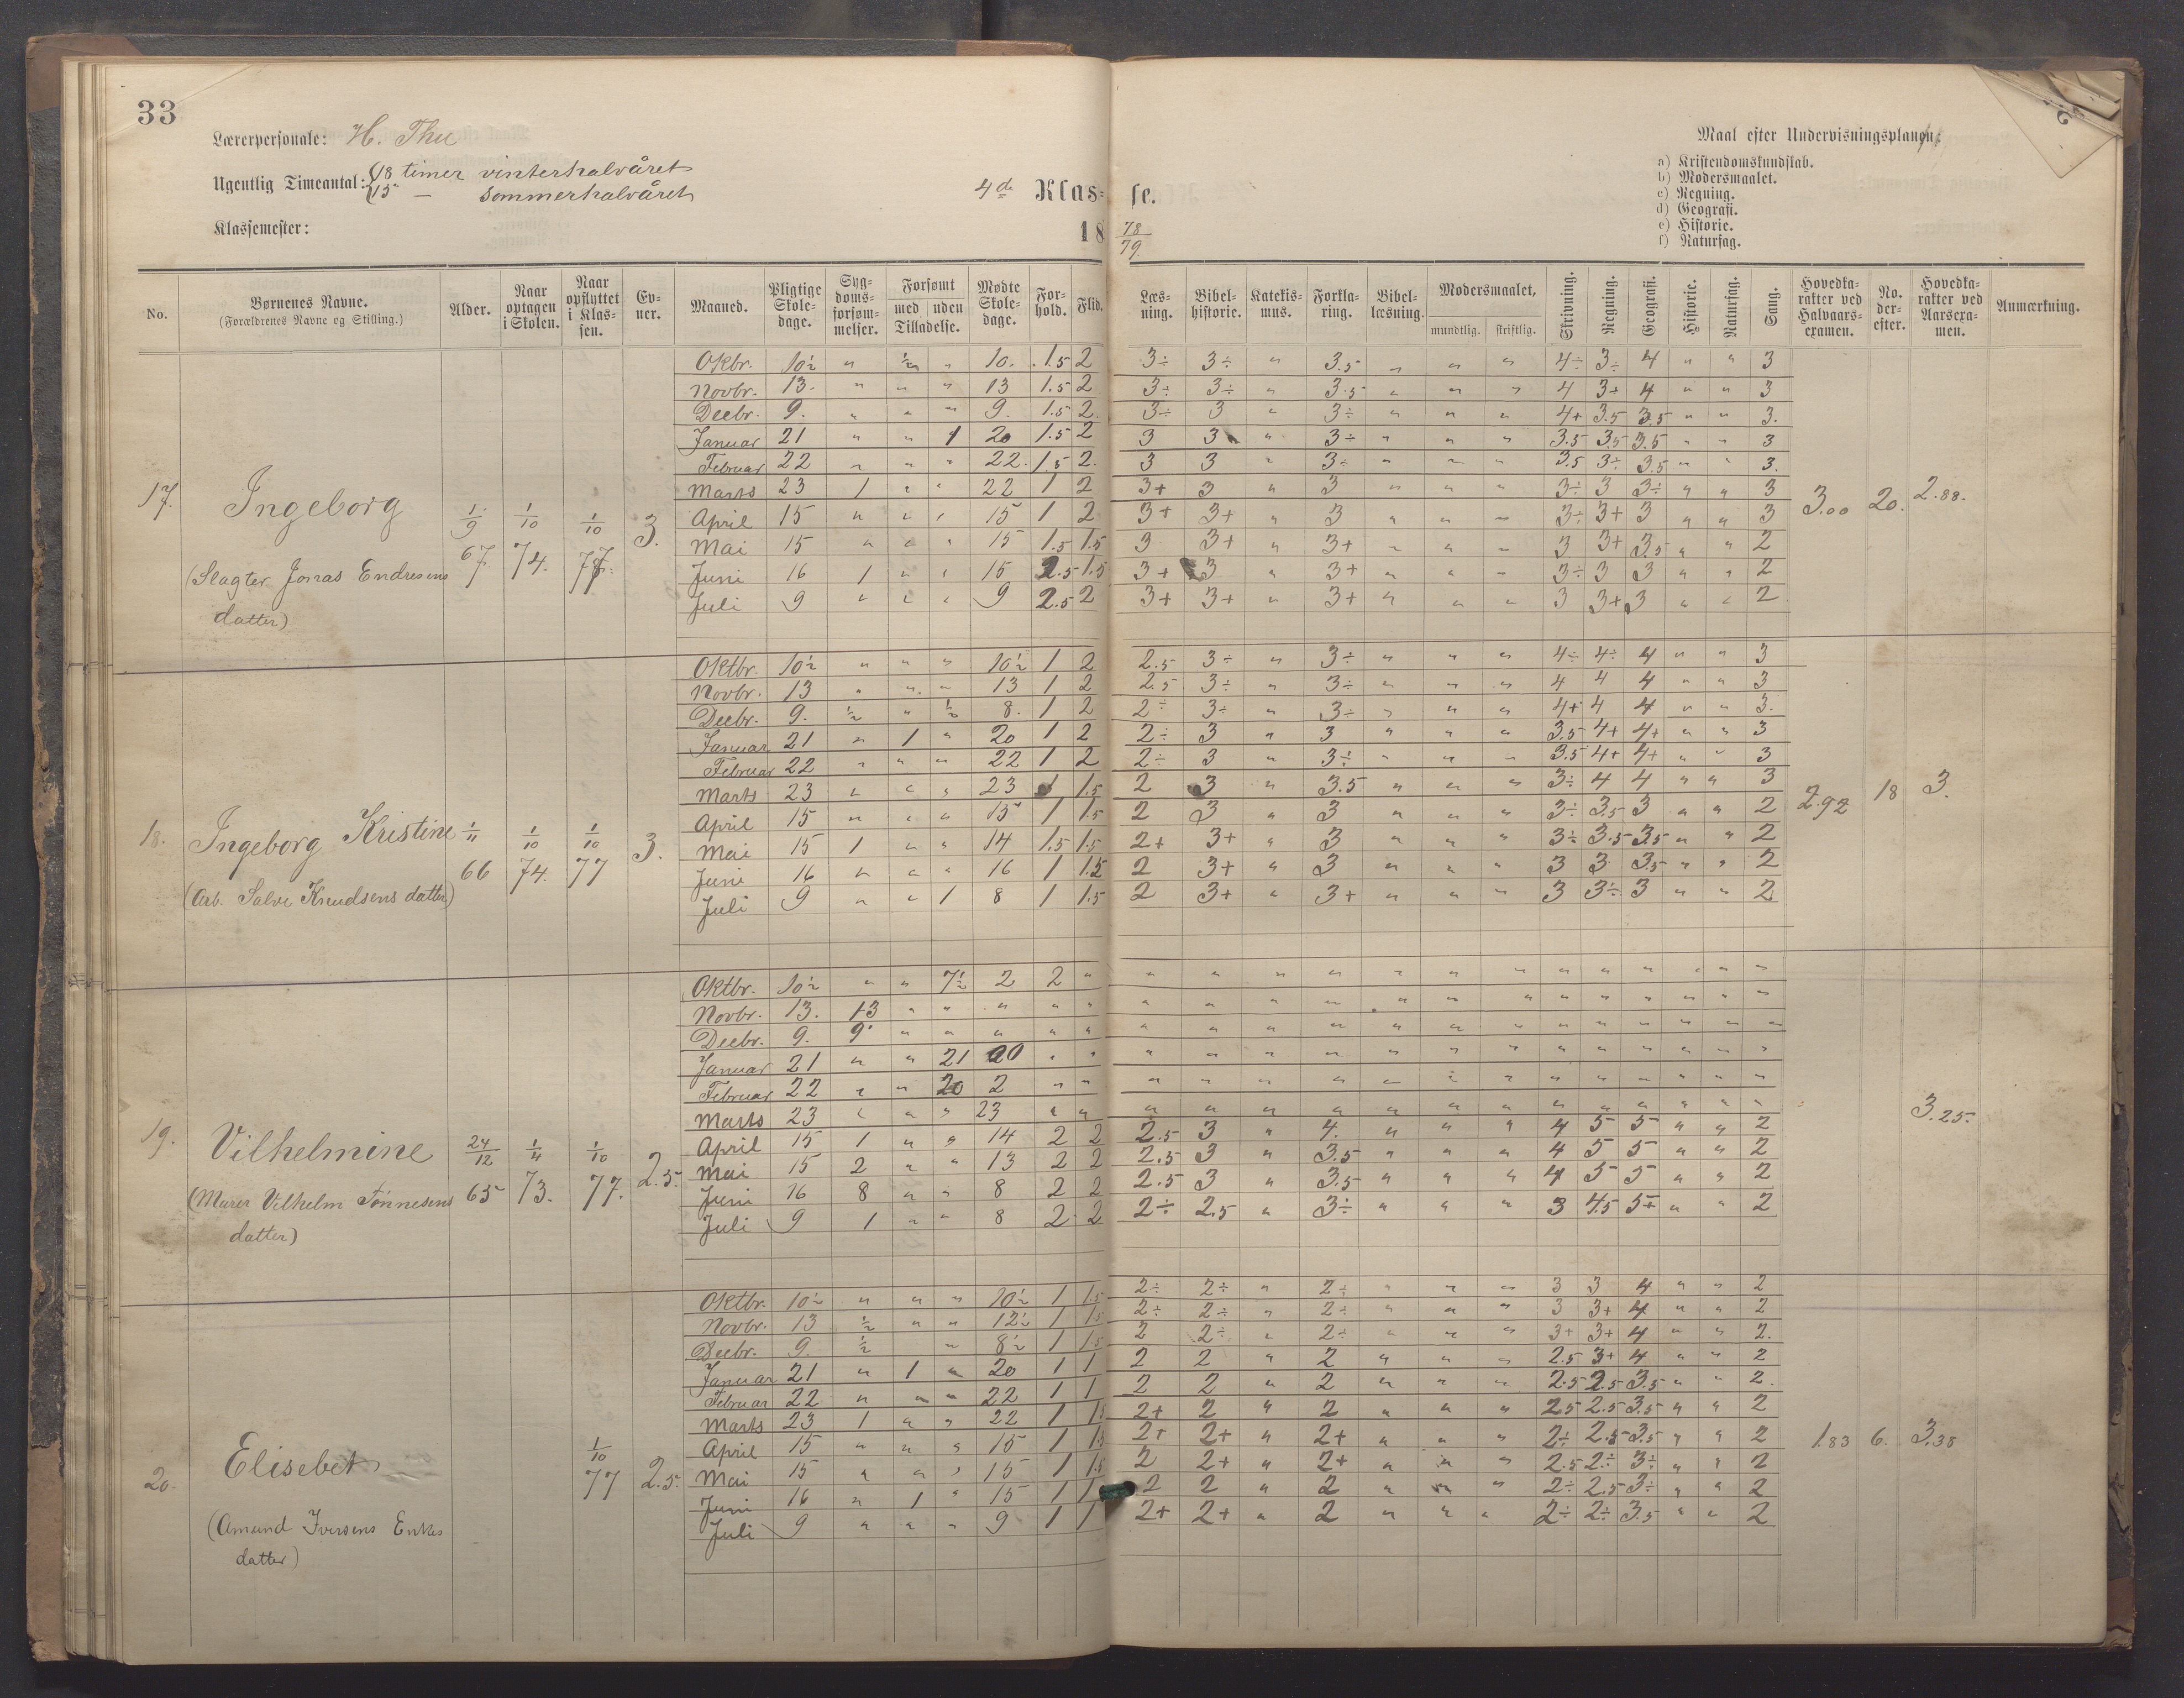 33
Lærerpersonale: H. Thu
Ugentlig Timeantal: 18 timer vinterhalvåret
15 — sommerhalvåret
Klassemester:
4de Klasse.
18 78/79.
Maal efter Undervisningsplanen:
a) Kristendomskundskab.
b) Modersmaalet.
c) Regning.
d) Geografi.
e) Historie.
f) Naturfag.
No. Børnenes Navne. (Forældrenes Navne og Stilling.) Alder. Naar optagen i Skolen. Naar opflyttet i Klassen. Evner. Maaned. Pligtige Skoledage. Sygdomsforsømmelser. Forsømt med uden Tilladelse. Mødte Skoledage. Forhold. Flid. Læsning. Bibelhistorie. Katekismus. Forklaring. Bibellæsning. Modersmaalet, mundtlig. skriftlig. Skrivning. Regning. Geografi. Historie. Naturfag. Sang. Hovedkarakter ved Halvaarsexamen. No. derefter. Hovedkarakter ved Aarsexamen. Anmærkning.
17. Ingeborg 1/9 67. 1/10 74. 1/10 77. 3. 3.00 20. 2.88.
(Slagter Jonas Endresens
datter)
Oktbr. 10½ " ½ " 10. 1.5 2 3÷ 3÷ " 3.5 " " " 4÷ 3÷ 4 " " 3
Novbr. 13. " " " 13 1.5 2 3÷ 3÷ " 3.5 " " " 4 3+ 4 " " 3
Decbr. 9. " " " 9. 1.5 2. 3÷ 3 " 3÷ " " " 4+ 3.5 3.5 " " 3.
Januar 21 " " 1 20 1.5 2 3 3 " 3÷ " " " 3.5 3.5 3.5 " " 3
Februar 22 " " " 22. 1.5 2. 3 3 " 3÷ " " " 3.5 3÷ 3.5 " " 3.
Marts 23 1 " " 22 1 2 3+ 3 " 3 " " " 3÷ 3 3÷ " " 3
April 15 " " " 15 1 2 3+ 3+ " 3 " " " 3÷ 3+ 3 " " 3
Mai 15 " " " 15 1.5 1.5 3 3+ " 3+ " " " 3 3+ 3.5 " " 2
Juni 16 1 " " 15 2.5 1.5 3+ 3 " 3+ " " " 3÷ 3 3 " " 2
Juli 9 " " " 9 2.5 2 3+ 3+ " 3+ " " " 3 3+ 3 " " 2
18. Ingeborg Kristine 1/11 66 1/10 74. 1/10 77 3. 2.92 18 3.
(Arb. Salve Knudsens datter)
Oktbr. 10½ " " " 10½ 1 2 2.5 3÷ " 3÷ " " " 4÷ 4÷ 4 " " 3
Novbr. 13 " " " 13 1 2 2.5 3÷ " 3÷ " " " 4 4 4 " " 3
Decbr. 9. ½ " ½ 8. 1 2 2÷ 3÷ " 3÷ " " " 4+ 4 4 " " 3.
Januar 21 " 1 " 20 1 2 2÷ 3 " 3 " " " 3.5 4+ 4+ " " 3
Februar 22 " " " 22 1 2 2÷ 3 " 3÷ " " " 3.5 4+ 4+ " " 3
Marts 23 " " " 23 1.5 2 3 " 3.5 " " " 3÷ 4 4 " " 3
April 15 " " " 15 1 1.5 2 3 " 3 " " " 3÷ 3.5 3 " " 2
Mai 15 1 " " 14 1.5 1.5 2+ 3+ " 3 " " " 3÷ 3.5 3.5 " " 2
Juni 16 " " " 16 1 1.5 2 3+ " 3 " " " 3 3 3.5 " " 2
Juli 9 " " 1 8 1 1.5 2 3+ " 3+ " " " 3 3÷ 3 " " 2
19. Vilhelmine 24/12 65 1/11 73. 1/10 77. 2.5. 3.25.
(Murer Vilhelm Tønnesens
datter)
Oktbr. 10½ " " 7½ 2 2 " " " " " " " " " " " " " "
Novbr. 13. 13 " " " " " " " " " " " " " " " " " "
Decbr. 9. 9 " " " " " " " " " " " " " " " " " "
Januar 21 " " 21 " " " " " " " " " " " " " " "
Februar 22 " " 20 2 " " " " " " " " " " " " " " "
Marts 23 " " " 23 " " " " " " " " " " " " " " "
April 15 1 " " 14 2 2 2.5 3 " 4. " " " 4 5 5 " " 2
Mai 15 2 " " 13 2 2 2.5 3 " 3.5 " " " 4 5 5 " " 2
Juni 16 8 " " 8 2 2 2.5 3 " 3.5 " " " 4 5 5 " " 2
Juli 9 1 " " 8 2 2 2÷ 2.5 " 3÷ " " " 3 4.5 5+ " " 2
20. Elisebet 1/10 77 2.5. 1.83 6. 3.38
(Amund Iversens Enkes
datter)
Oktbr. 10½ " " " 10½ 1 1.5 2÷ 2÷ " 2÷ " " " 3 3 4 " " 2
Novbr. 13 ½ " " 12½ 1 1.5 2÷ 2÷ " 2÷ " " " 3 3+ 4 " " 2
Decbr. 9. ½ " 8½ 1 1.5 2 2÷ " 2÷ " " " 3+ 3+ 4 " " 2.
Januar 21 " 1 " 20 1 1 2 2 " 2 " " " 2.5 3+ 4 " " 2
Februar 22 " " " 22 1 1 2 2 " 2 " " " 2.5 2.5 3.5 " " 2.
Marts 23 1 " " 22 1 1.5 2+ 2 " 2 " " " 2.5 2.5 3.5 " " 2
April 15 " " " 15 1 1.5 2+ 2+ " 2+ " " " 2÷ 2.5 3.5 " " 2
Mai 15 " " " 15 1 1.5 2 2+ " 2+ " " " 2.5 2÷ 3÷ " " 2
Juni 16 " 1 " 15 1 1 2 2 " 2 " " " 2÷ 2.5 3÷ " " 2
Juli 9 " " " 9 1 1 2+ 2+ " 2 " " " 2÷ 2÷ 3.5 " " 2